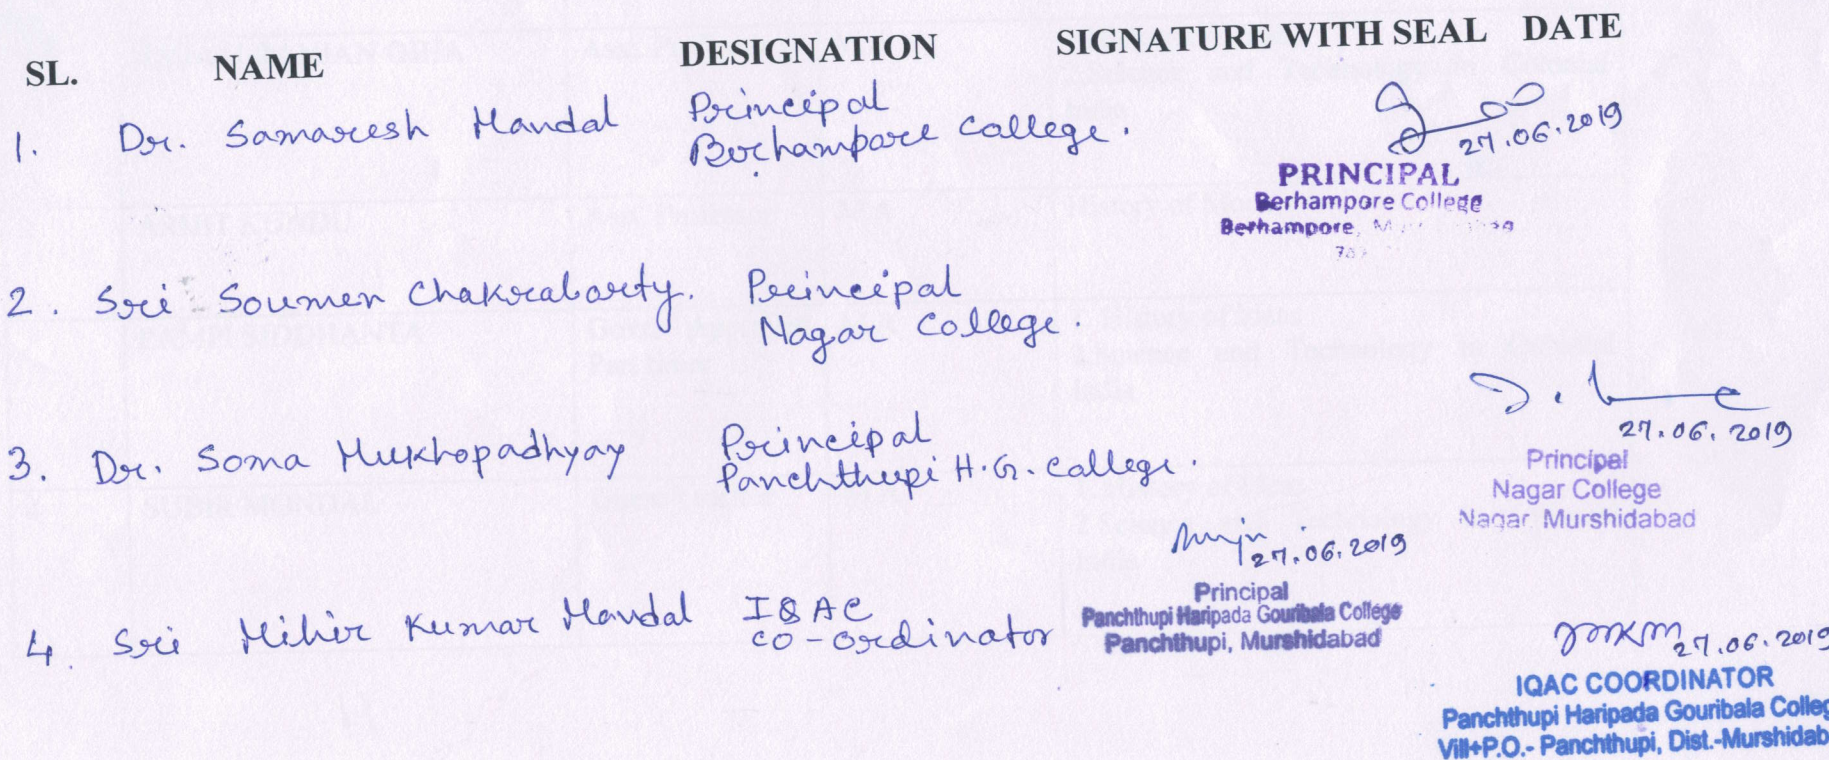 SL. NAME DESIGNATION SIGNATURE WITH SEAL DATE
1. Dr. Samaresh Mandal Principal
Berhampore College.
27.06.2019
PRINCIPAL
Berhampore College
Berhampore,
2. Sri Soumen Chakrabarty. Principal
Nagar College.
27.06.2019
Principal
Nagar College
Nagar, Murshidabad
3. Dr. Soma Mukhopadhyay Principal
Panchthupi H.G. College.
27.06.2019
Principal
Panchthupi Haripada Gouribala College
Panchthupi, Murshidabad
4. Sri Mihir Kumar Mandal IQAC
Co-ordinator
27.06.2019
IQAC COORDINATOR
Panchthupi Haripada Gouribala Colleg
Vill+P.O.- Panchthupi, Dist.-Murshidab